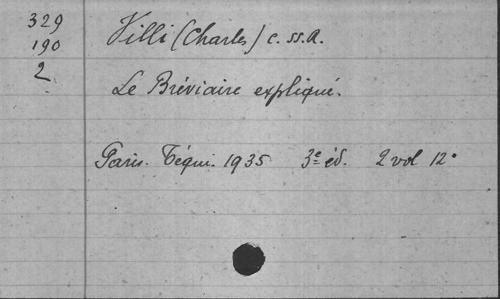 329
190
2
Villi (Charles) c. ss. R.
Le Bréviaire expliqué.
Paris. Téqui. 1935 3e éd. 2 vol 12°